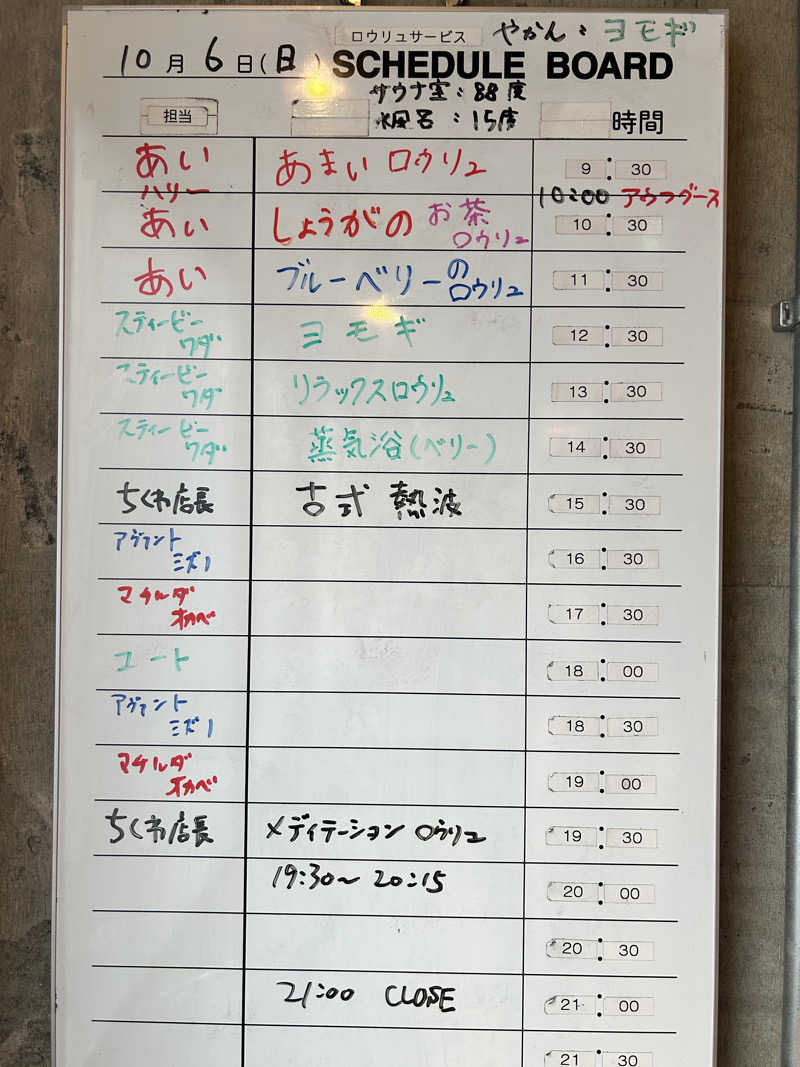 ロウリュサービス やかん：ヨモギ
10月6日(日) SCHEDULE BOARD
サウナ室：88度
水風呂：15度
担当 時間
あい あまい ロウリュ 9:30
ハリー 10:00 アウフグース
あい しょうがの お茶ロウリュ 10:30
あい ブルーベリーのロウリュ 11:30
スティービーワダ ヨモギ 12:30
スティービーワダ リラックスロウリュ 13:30
スティービーワダ 蒸気浴(ベリー) 14:30
ちくわ店長 古式 熱波 15:30
アヴァントミズノ 16:30
マチルダオカベ 17:30
ユート 18:00
アヴァントミズノ 18:30
マチルダオカベ 19:00
ちくわ店長 メディテーション ロウリュ 19:30
19:30〜20:15 20:00
20:30
21:00 CLOSE 21:00
21:30